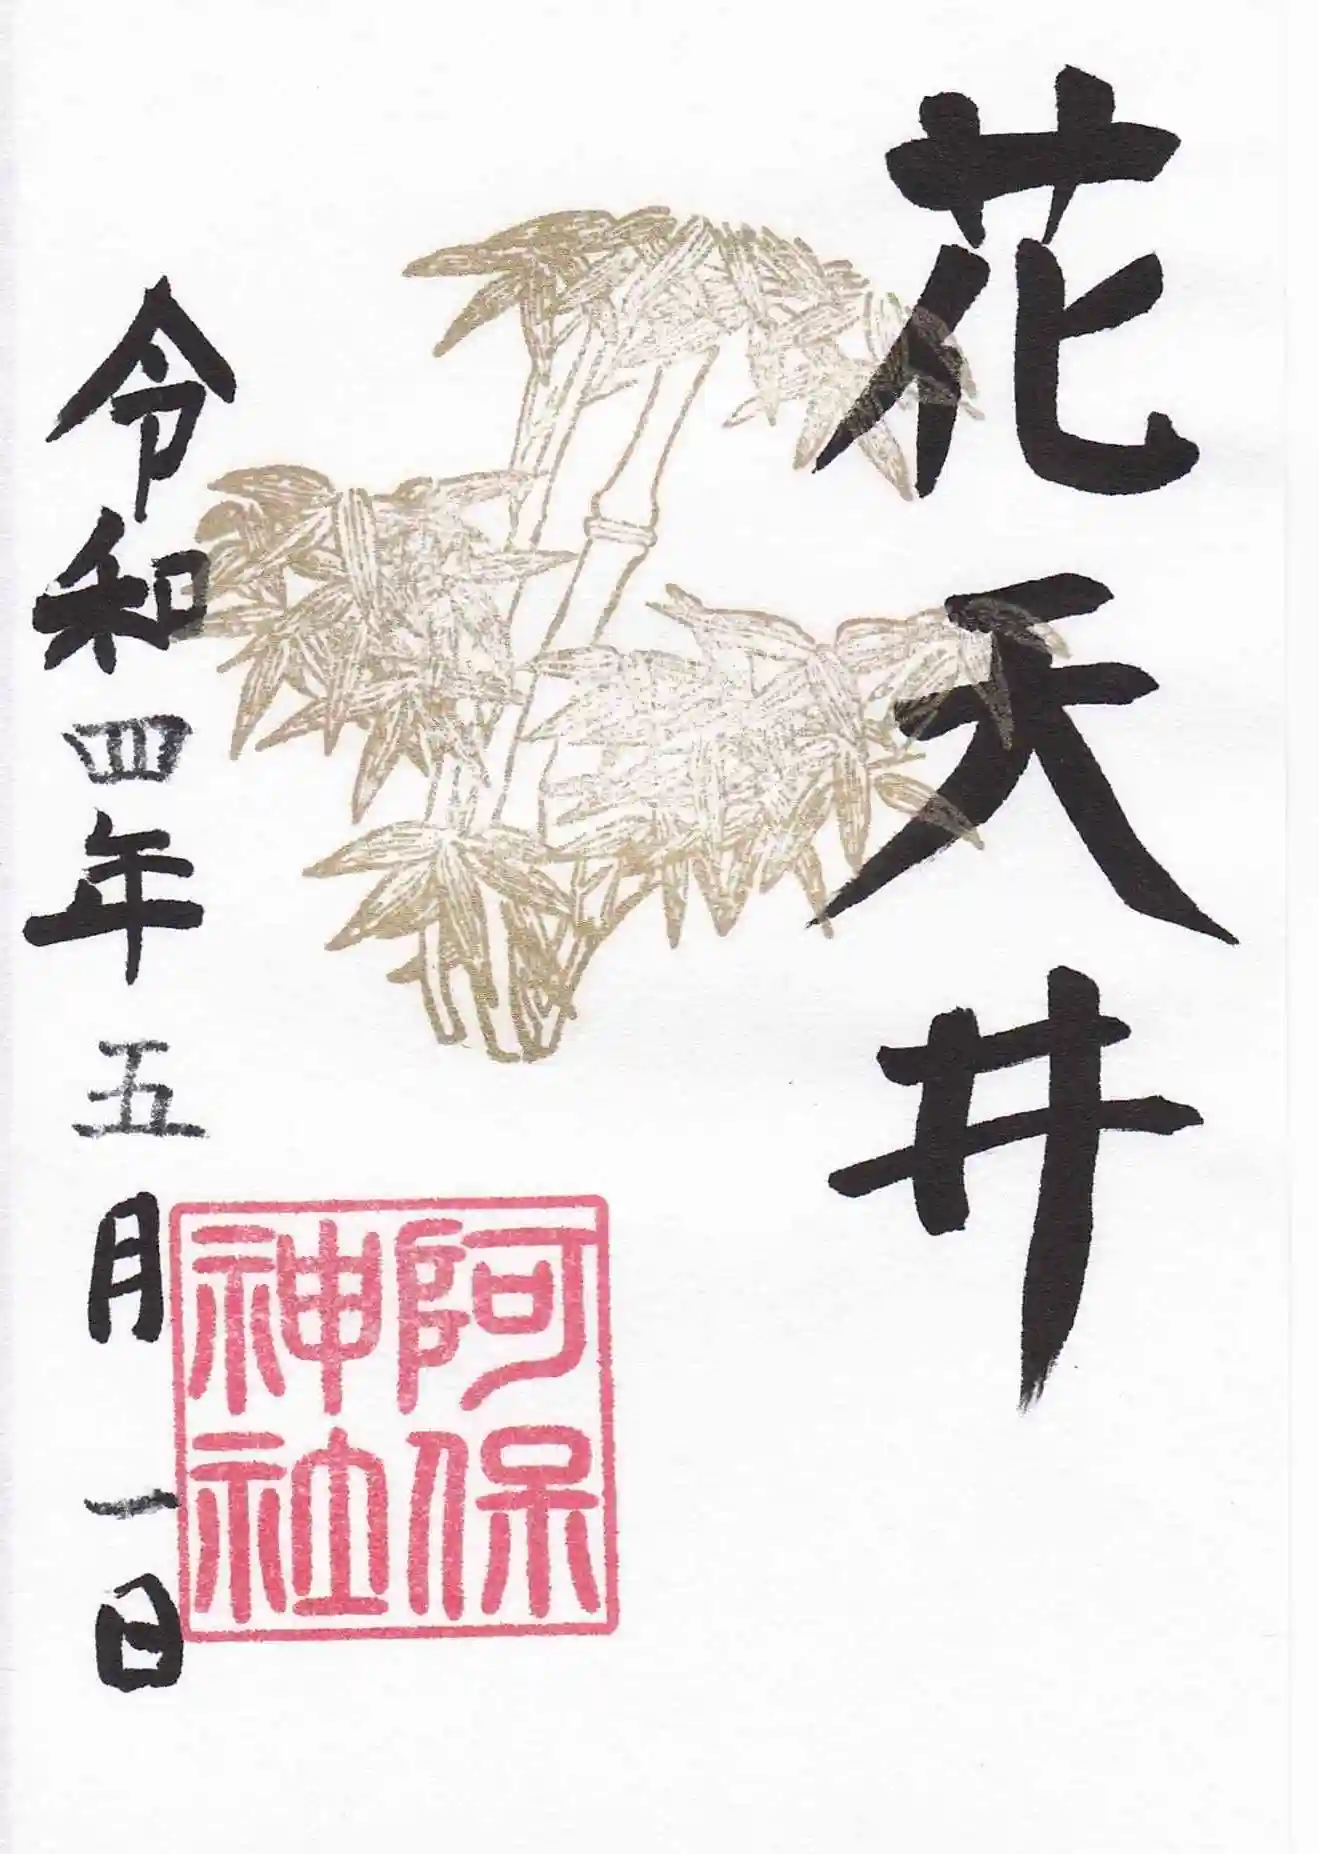 花天井
阿保
神社
令和四年五月一日